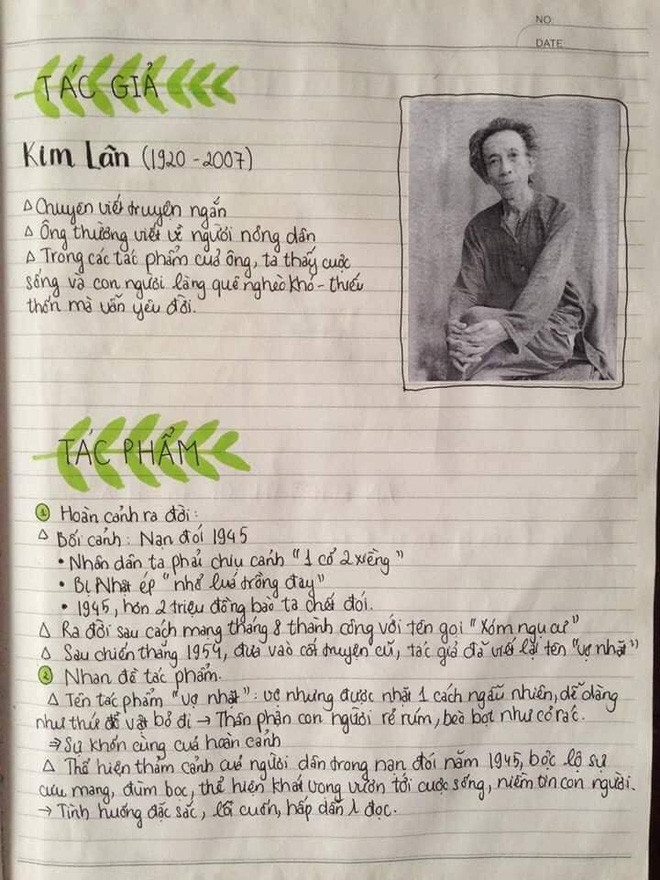 NO.
DATE
TÁC GIẢ
Kim Lân (1920 - 2007)
Δ Chuyên viết truyện ngắn
Δ Ông thường viết về người nông dân
Δ Trong các tác phẩm của ông, ta thấy cuộc
sống và con người làng quê nghèo khó - thiếu
thốn mà vẫn yêu đời.
TÁC PHẨM
1 Hoàn cảnh ra đời:
Δ Bối cảnh: Nạn đói 1945
• Nhân dân ta phải chịu cảnh "1 cổ 2 xiềng"
• Bị Nhật ép "nhổ lúa trồng đay"
• 1945, hơn 2 triệu đồng bào ta chết đói.
Δ Ra đời sau cách mạng tháng 8 thành công với tên gọi "Xóm ngụ cư"
Δ Sau chiến thắng 1954, dựa vào cốt truyện cũ, tác giả đã viết lại tên "vợ nhặt"
2 Nhan đề tác phẩm.
Δ Tên tác phẩm "vợ nhặt": vợ nhưng được nhặt 1 cách ngẫu nhiên, dễ dàng
như thứ đồ vật bỏ đi → Thân phận con người rẻ rúm, bèo bọt như cỏ rác.
⇒ Sự khốn cùng của hoàn cảnh
Δ Thể hiện thảm cảnh của người dân trong nạn đói năm 1945, bộc lộ sự
cưu mang, đùm bọc, thể hiện khát vọng vươn tới cuộc sống, niềm tin con người.
→ Tình huống đặc sắc, lôi cuốn, hấp dẫn λ đọc.